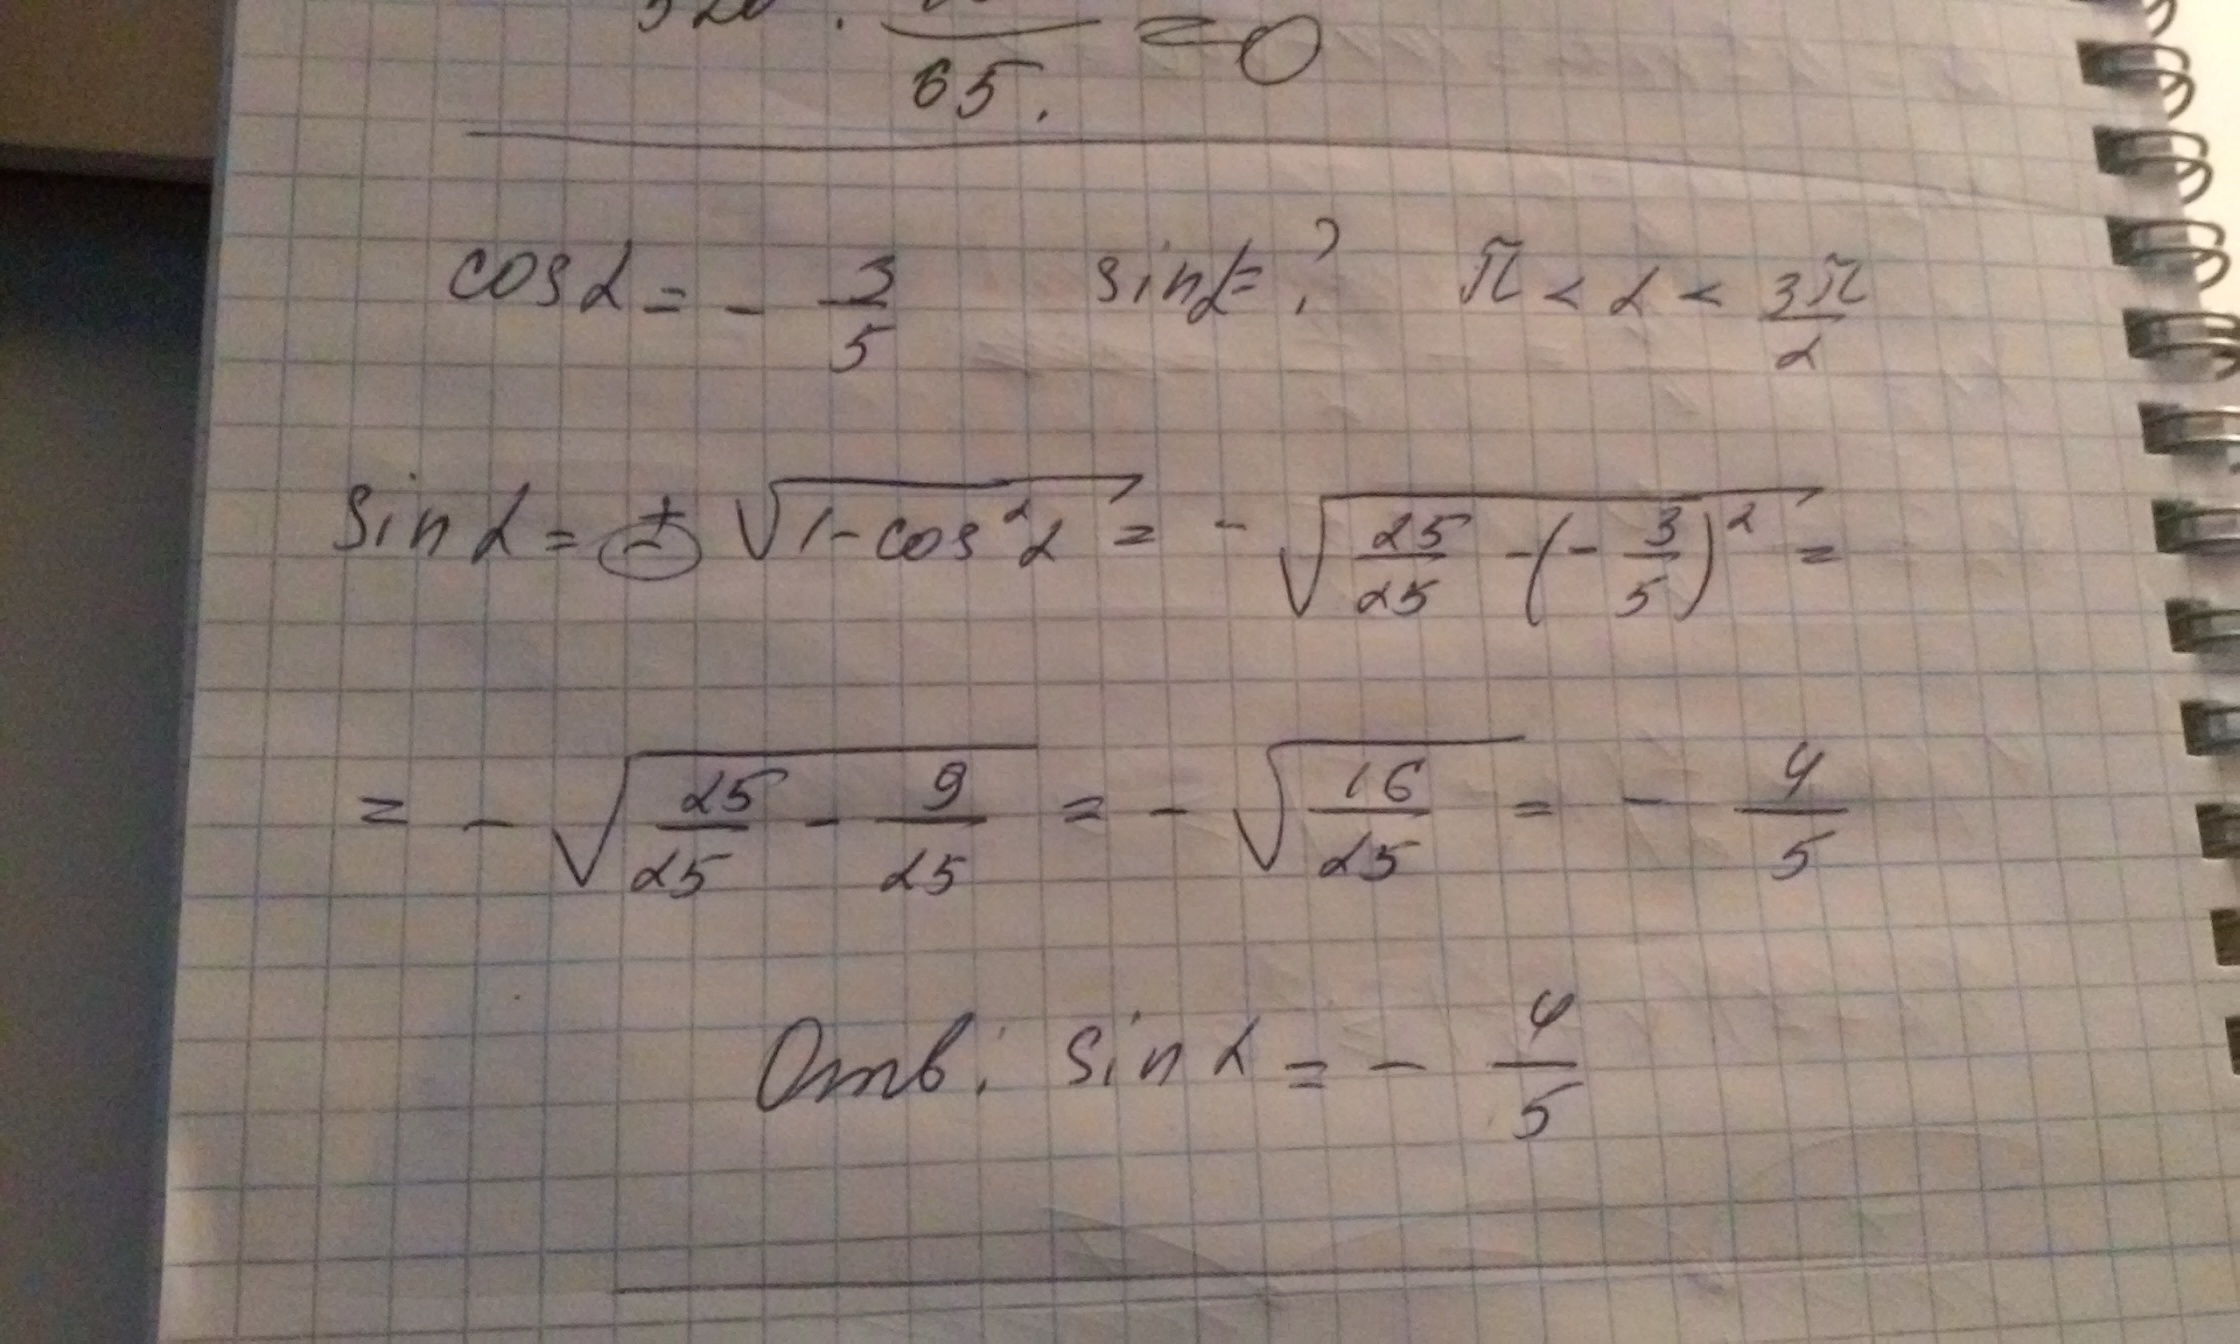 65.
=0
cos α = - 3/5 sin α = ? π < α < 3π/2
sin α = ± √(1 - cos²α) = - √(25/25 - (- 3/5)²) =
= - √(25/25 - 9/25) = - √(16/25) = - 4/5
Отв: sin α = - 4/5